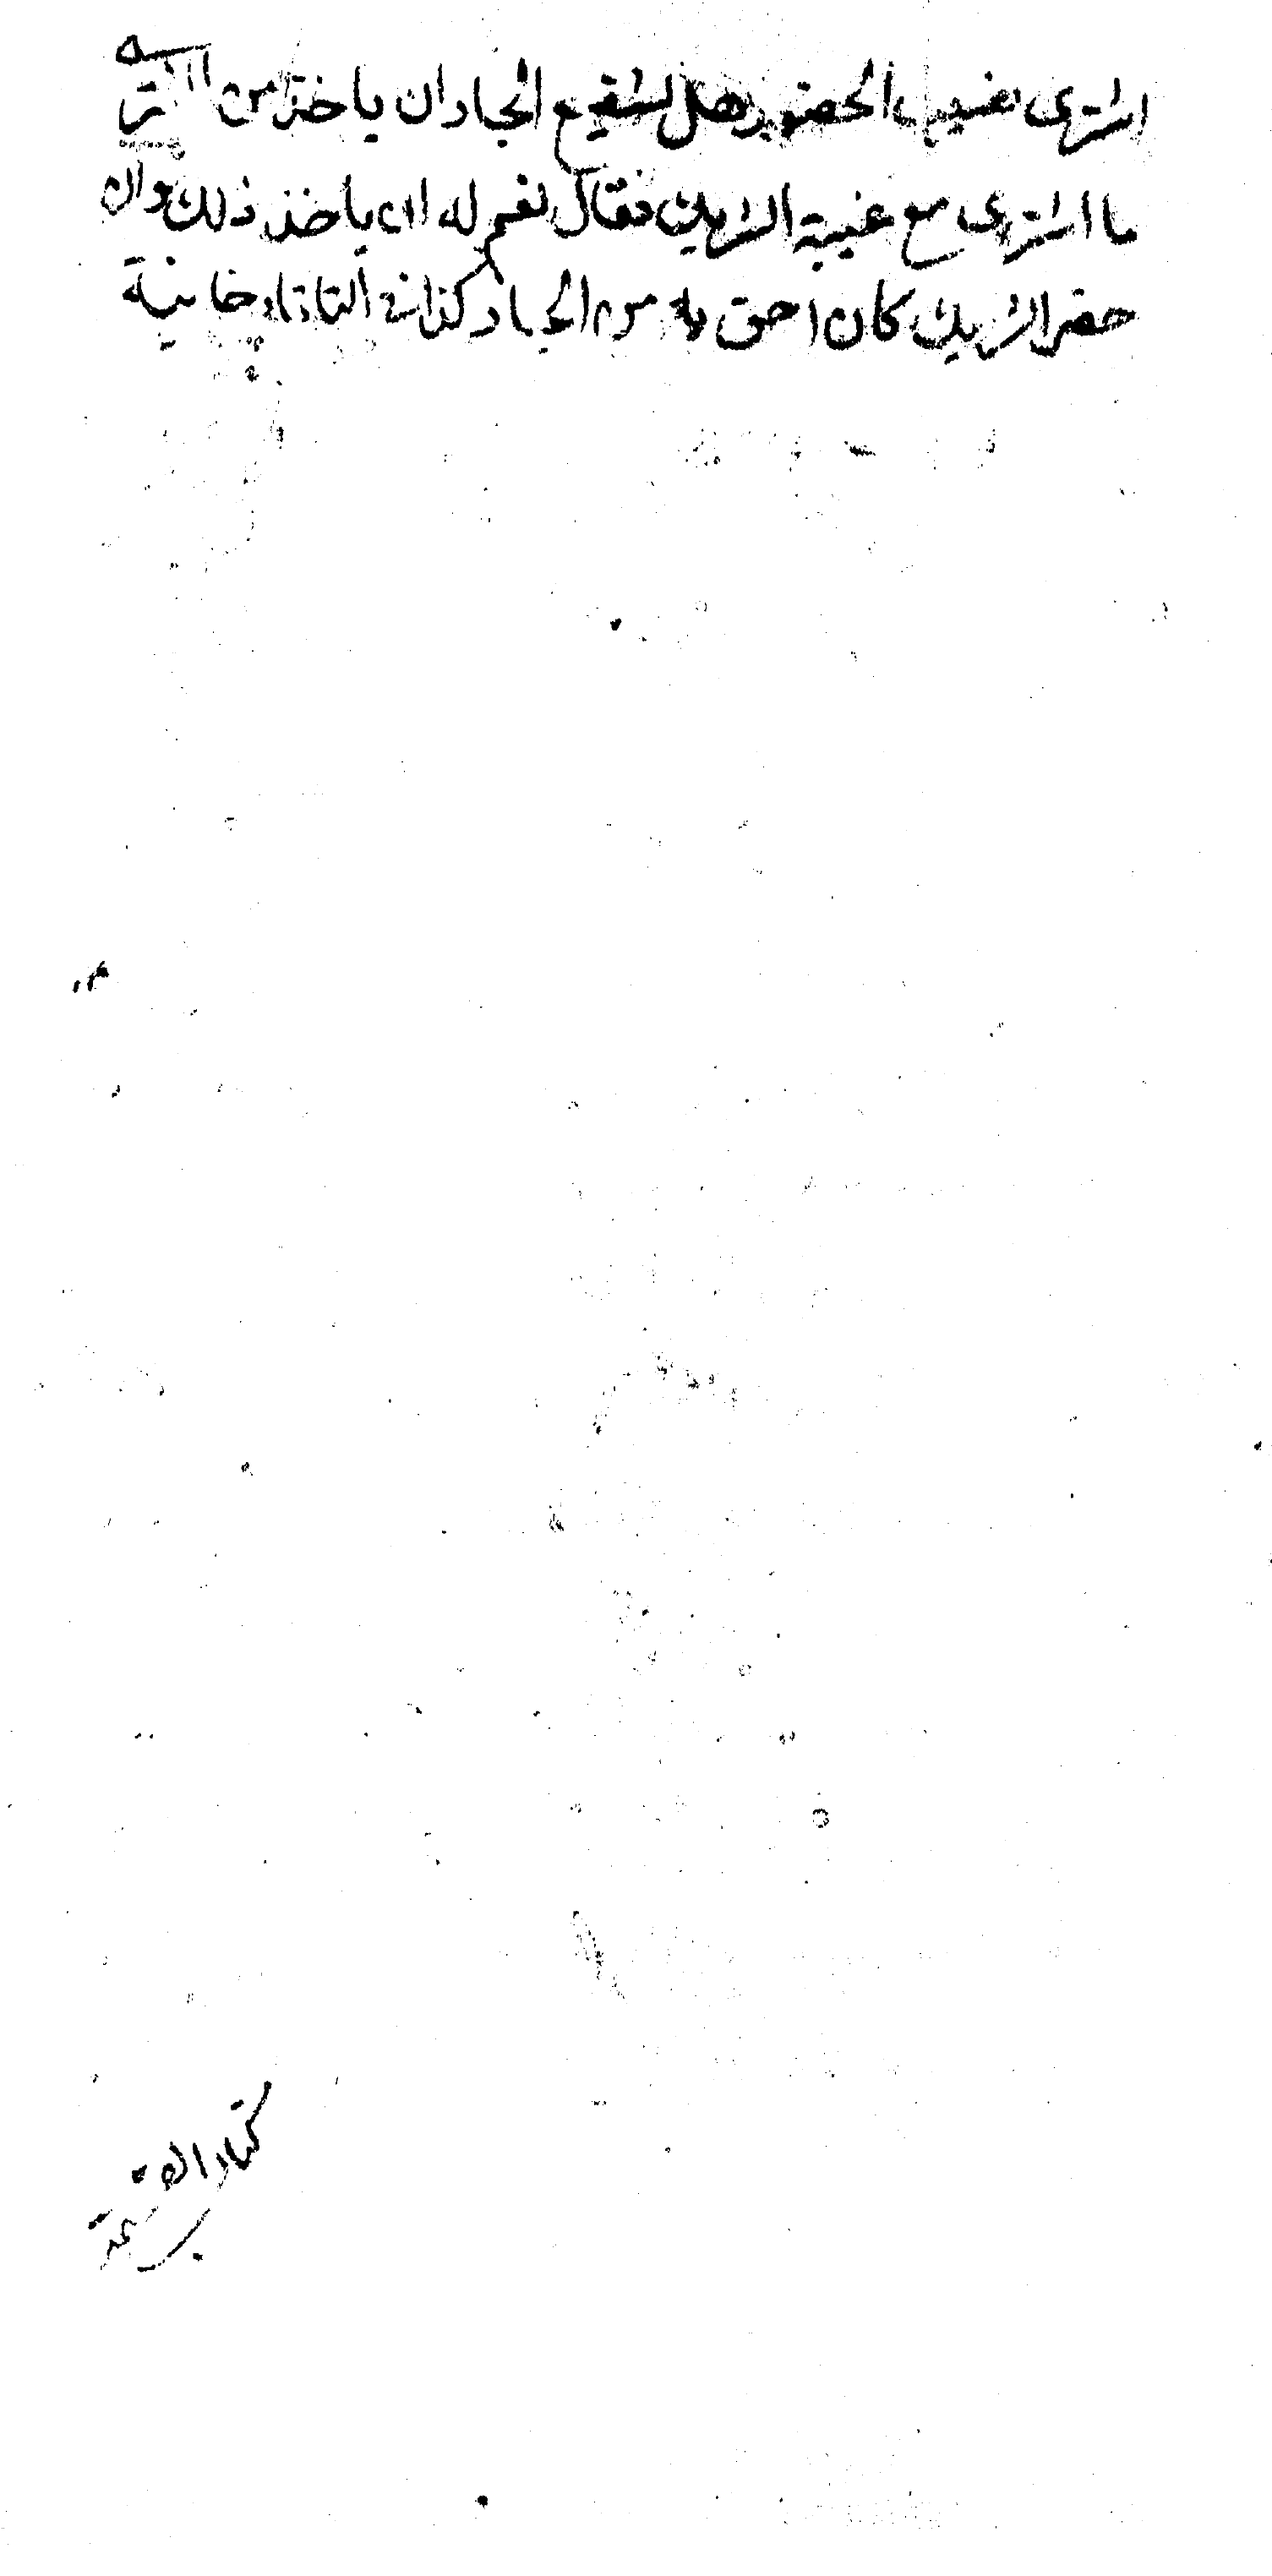 اشترى نصيب الحضور هل لشفيع الجار ان ياخذ من المشتري
ما اشترى مع غيبة الشريك فقال نعم له ان ياخذ ذلك وان
حضر الشريك كان احق به من الجار كذا في التاتارخانية
كتاب